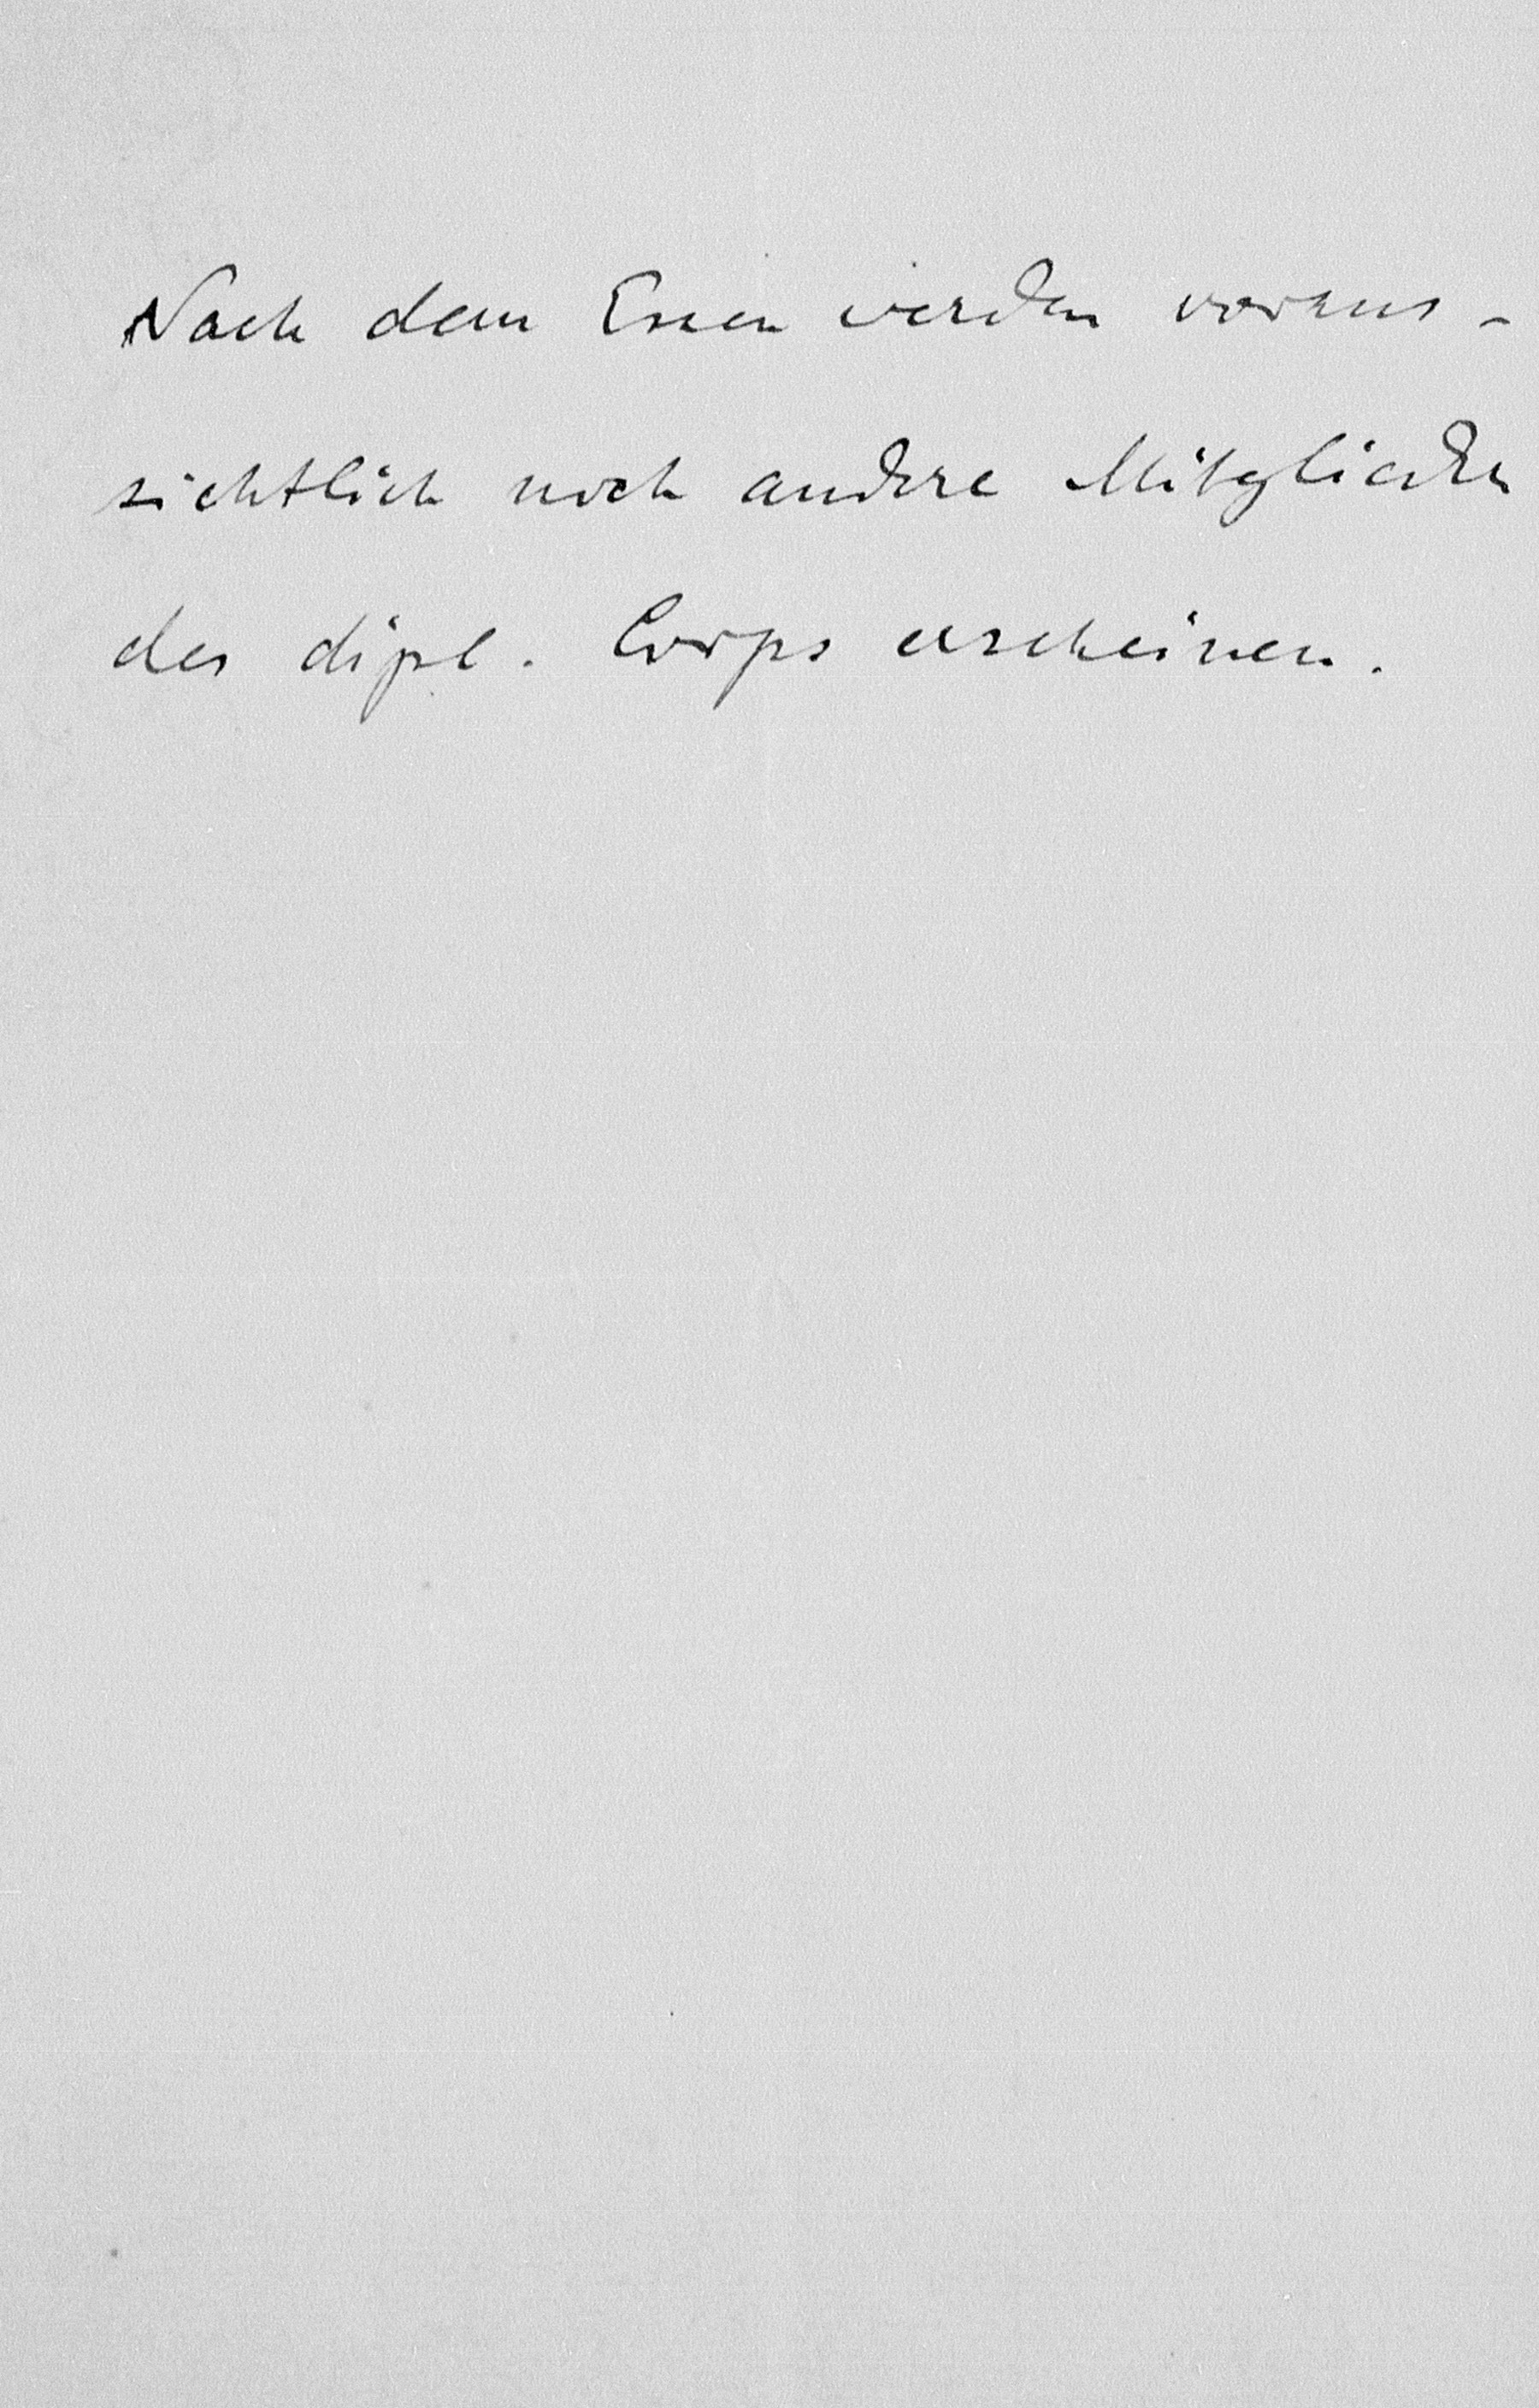 Nach dem Essen werden voraus-
sichtlich noch andere Mitglieder
des dipl. Corps erscheinen.